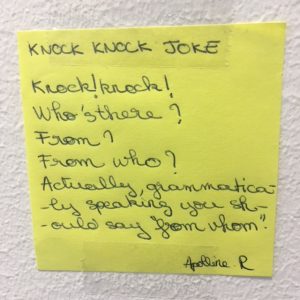 KNOCK KNOCK JOKE
Knock! knock!
Who's there?
From?
From who?
Actually, grammatica-
-ly speaking you sh-
-ould say "from whom".
Apolline. R